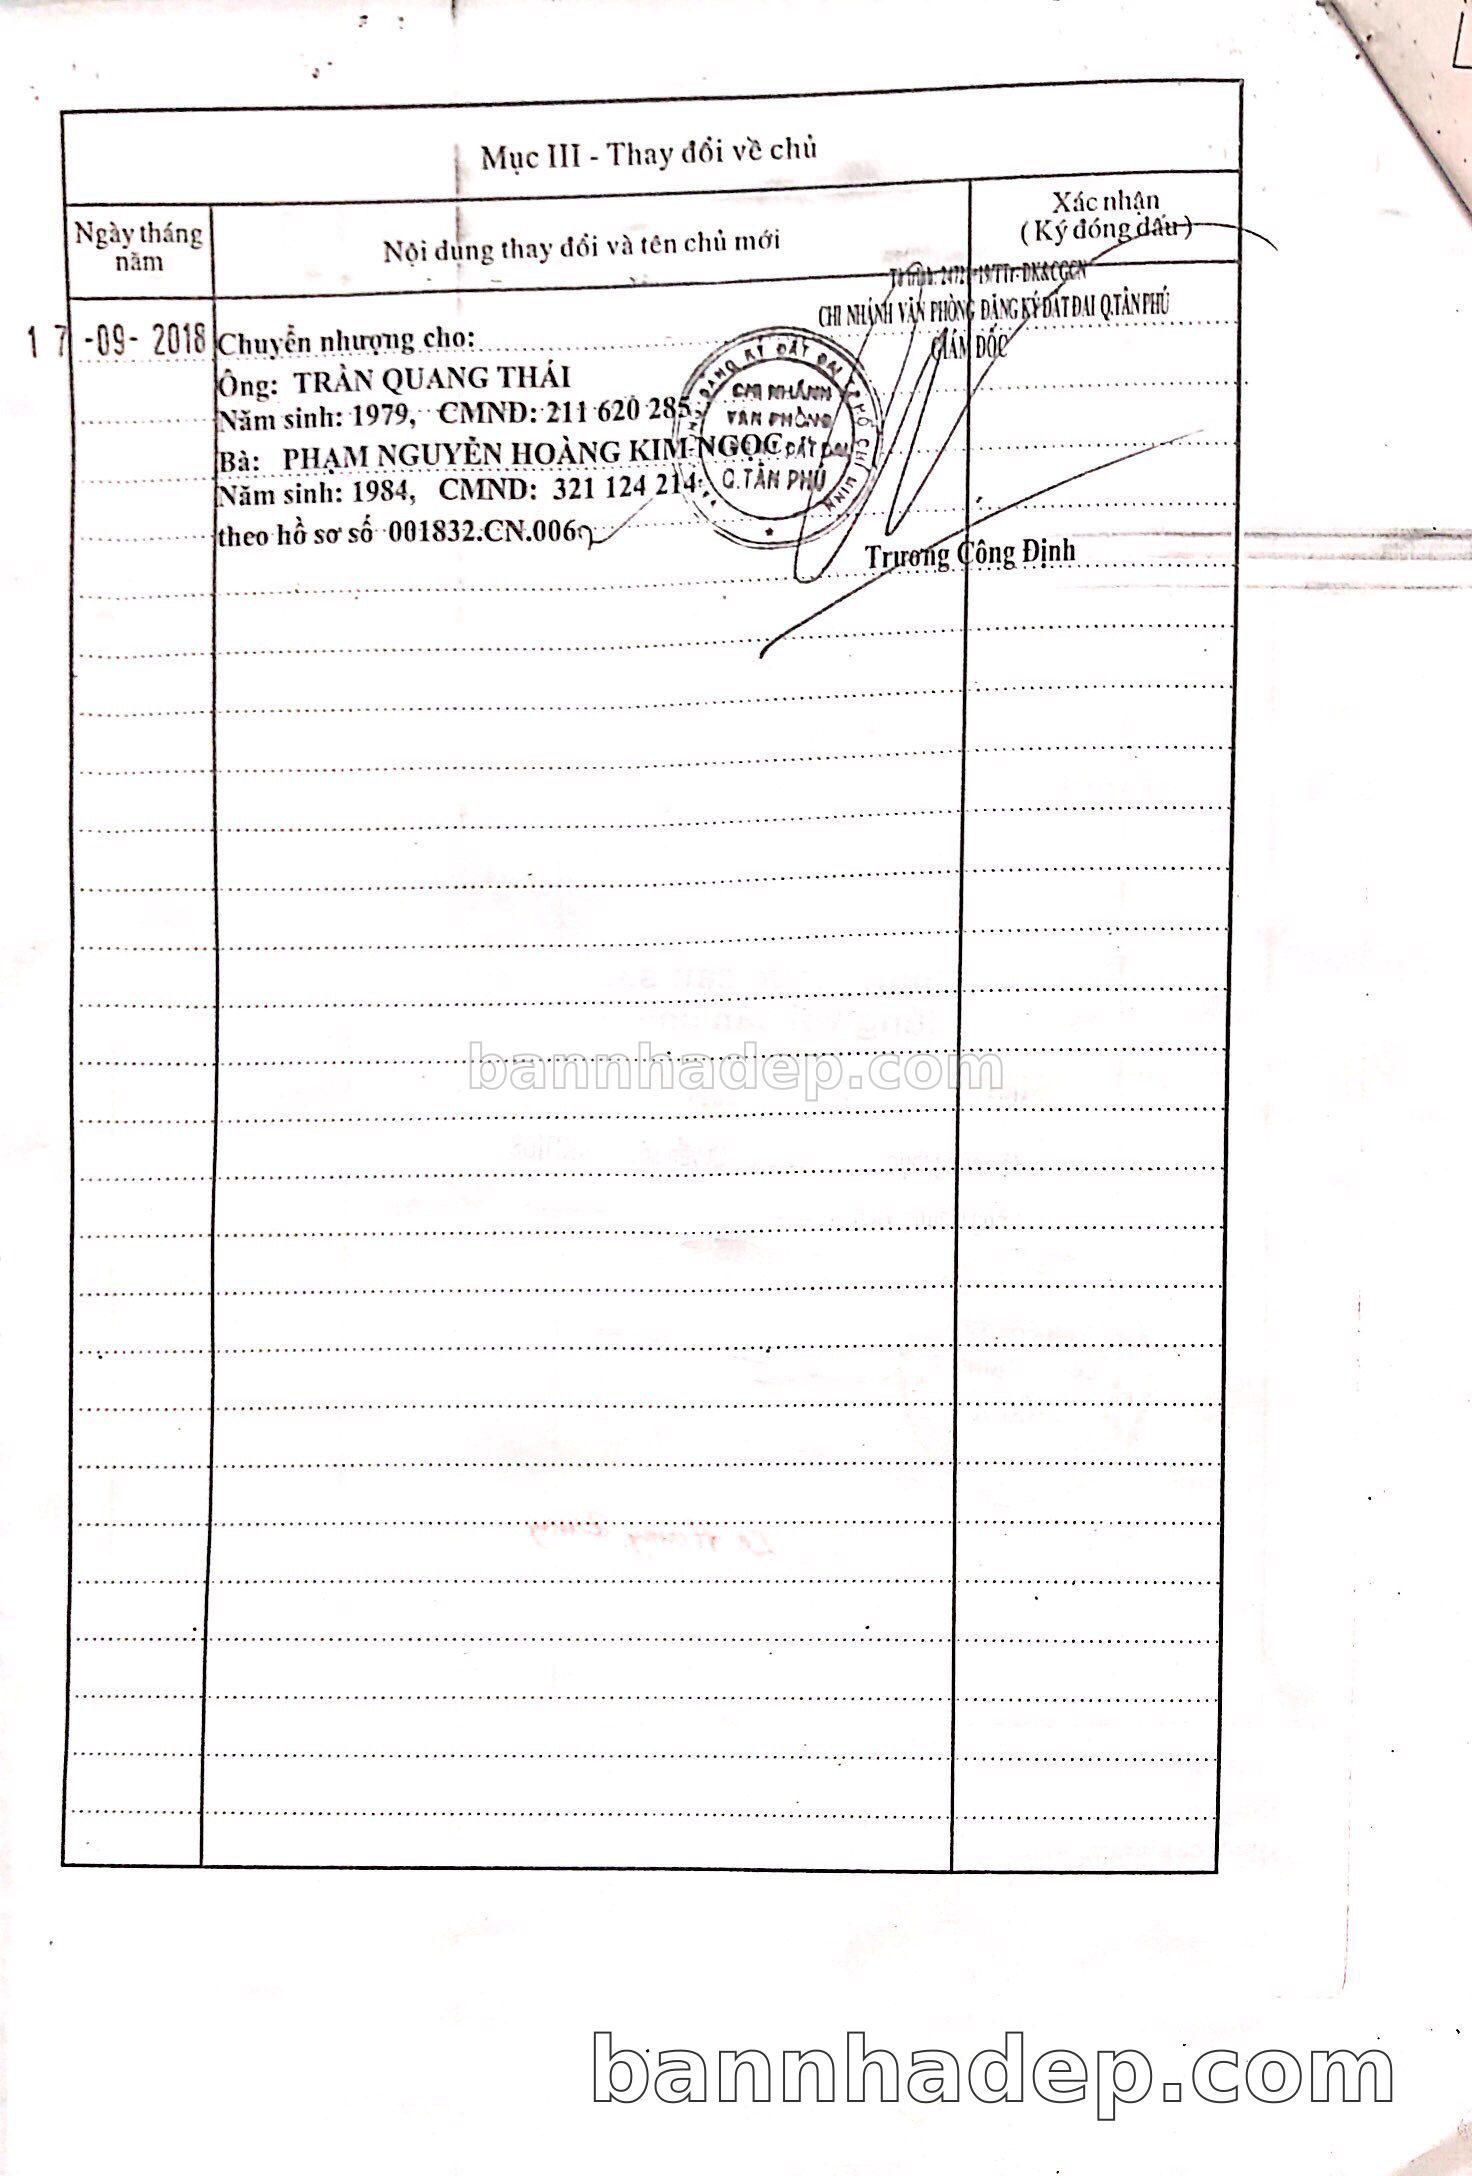 Mục III - Thay đổi về chủ
Ngày tháng năm
Nội dung thay đổi và tên chủ mới
Xác nhận
( Ký đóng dấu )
CHI NHÁNH VĂN PHÒNG ĐĂNG KÝ ĐẤT ĐAI Q.TÂN PHÚ
GIÁM ĐỐC
17 -09- 2018
Chuyển nhượng cho:
Ông: TRẦN QUANG THÁI
Năm sinh: 1979, CMND: 211 620 285
Bà: PHẠM NGUYỄN HOÀNG KIM NGỌC
Năm sinh: 1984, CMND: 321 124 214
theo hồ sơ số 001832.CN.006
CHI NHÁNH
VĂN PHÒNG
ĐẤT ĐAI
Q.TÂN PHÚ
Trương Công Định
bannhadep.com
bannhadep.com